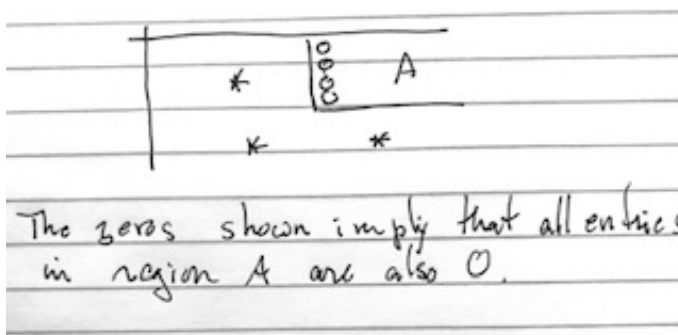 0
0
0
0
A
*
*
*
The zeros shown imply that all entries
in region A are also 0.